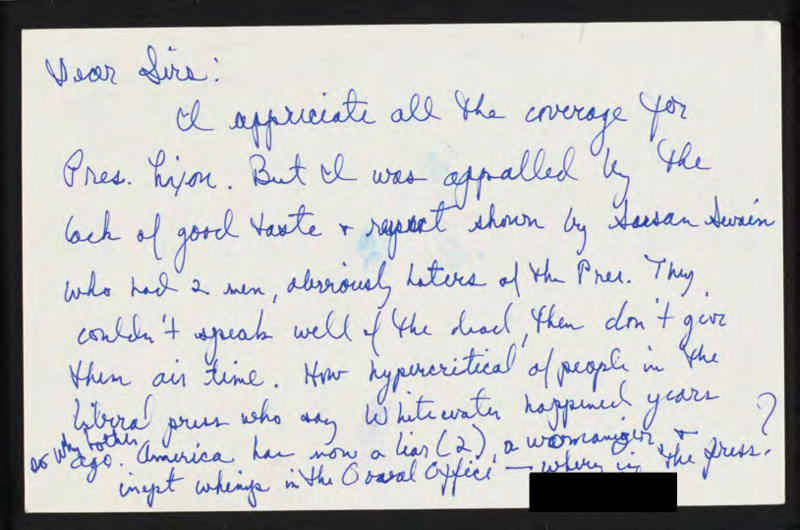 Dear Sirs:
I appriciate all the coverage for
Pres. Nixon. But I was appalled by the
lack of good taste + respect shown by Susan Swain
who had 2 men, obviously haters of the Pres. They
couldn't speak well of the dead, then don't give
them air time. How hypercritical of people in the
liberal press who say Whitewater happened years
ago. so why bother America has now a liar (2), a womanizer +
inept in the Ooval Office — where is the press?